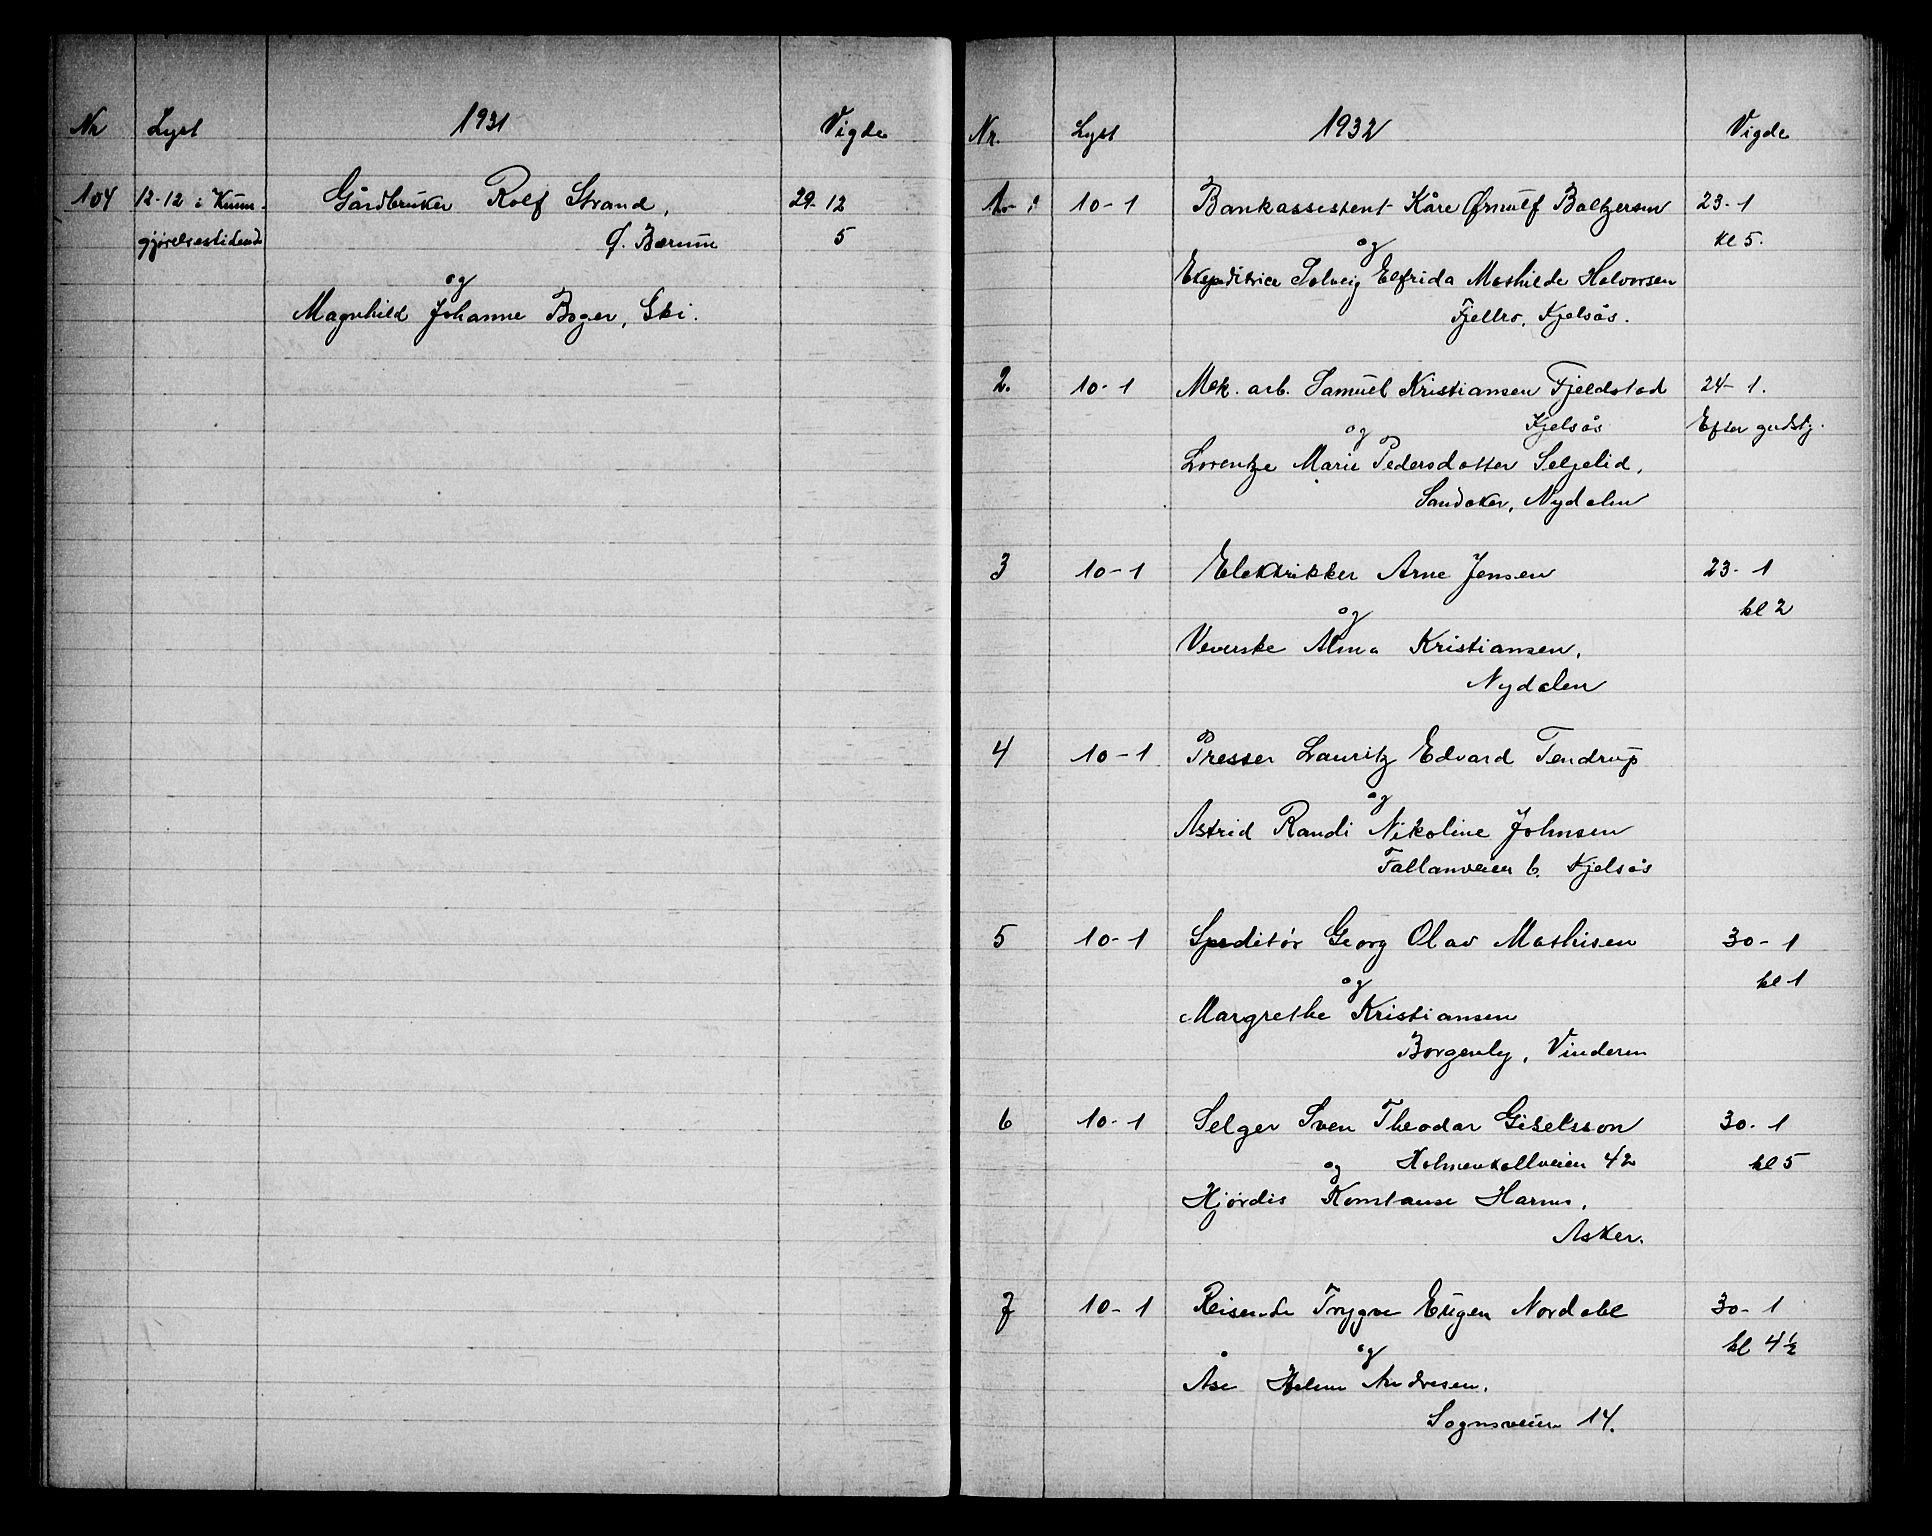 Nr Lyst 1931 Vigde
104 12-12 i Kunn- Gårdbruker Rolf Strand, 29-12
gjørelsestidende Ø. Bærum 5
og
Magnhild Johanne Boger, Ski.
Nr. Lyst 1932 Vigde
1. 10-1 Bankassistent Kåre Ørnulf Baltzersen 23-1
og kl 5.
Ekspeditrice Solveig Elfrida Mathilde Halvorsen
Fjellro, Kjelsås.
2. 10-1 Mek. arb. Samuel Kristiansen Fjeldstad 24-1.
og Kjelsås Efter gudstj.
Lorentze Marie Pedersdatter Seljelid,
Sandaker, Nydalen
3 10-1 Elektrikker Arne Jensen 23-1
og kl 2
Veverske Alma Kristiansen,
Nydalen
4 10-1 Presser Lauritz Edvard Tendrup
og
Astrid Randi Nikoline Johnsen
Tallanveien 6. Kjelsås
5 10-1 Speditør Georg Olav Mathisen 30-1
og kl 1
Margrethe Kristiansen
Borgenby, Vinderen
6 10-1 Selger Sven Theodor Giselsson 30-1
og Holmenkollveien 42 kl 5
Hjørdis Konstanse Harms,
Asker.
7 10-1 Reisende Trygve Eugen Nordahl 30-1
og kl 4½
Åse Helene Andresen,
Sognsveien 14.